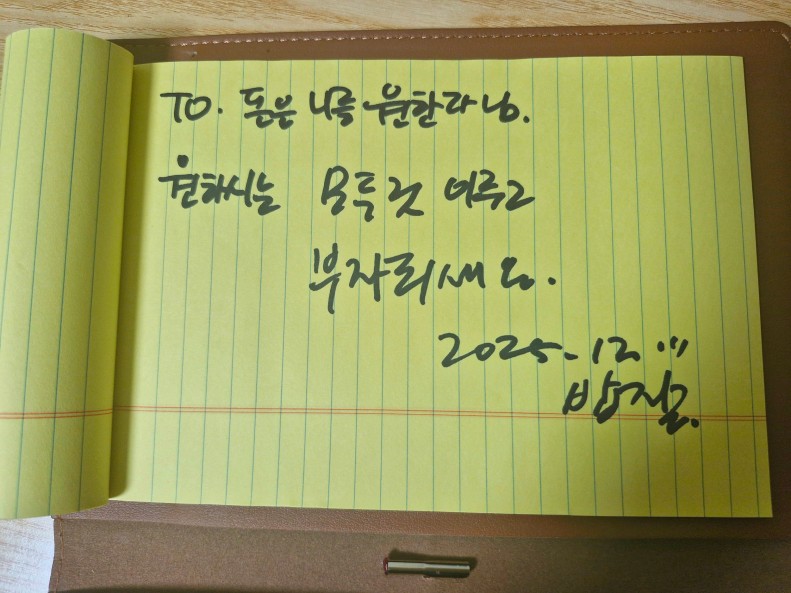 TO. 돈은 나를 원한다 님.
원하시는 모든것 이루고
부자되세요.
2025. 12.